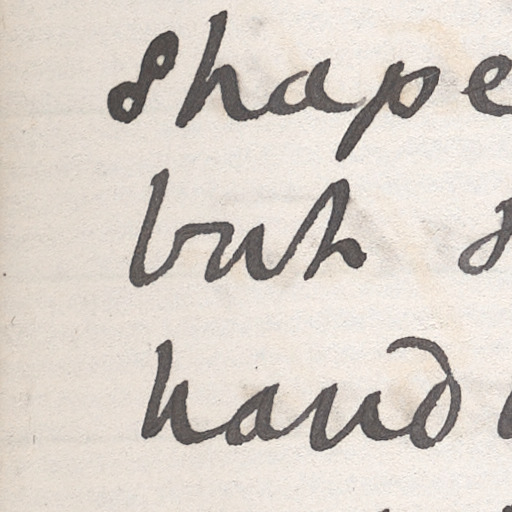 shape
but s
hand